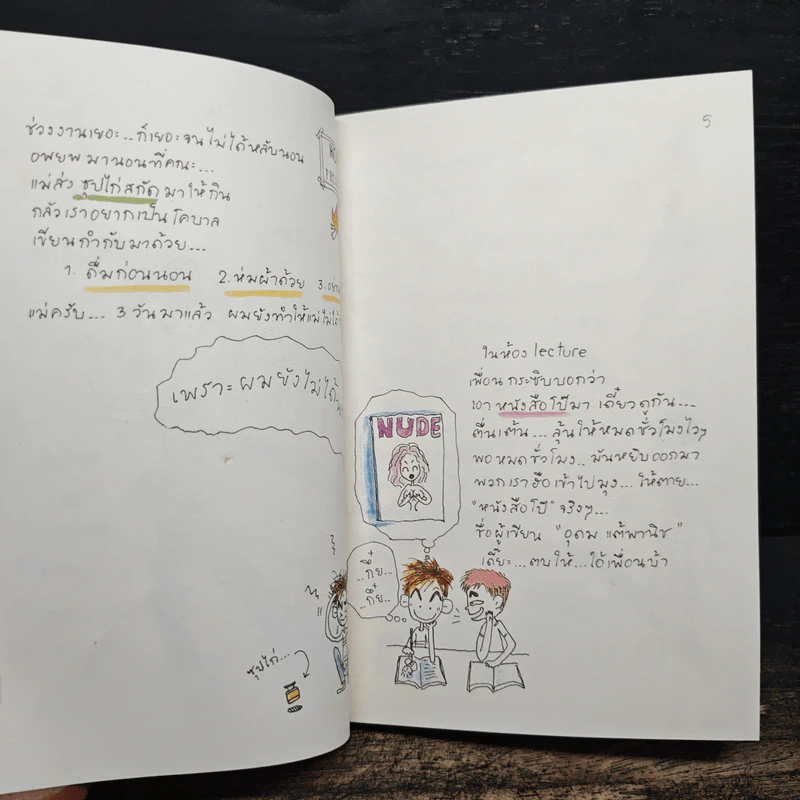 ช่วงงานเยอะ.. ก็เยอะจนไม่ได้หลับนอน
อพยพมานอนที่คณะ...
แม่ส่ง ซุปไก่สกัด มาให้กิน
กลัวเราอยากเป็นโคบาล
เขียนกำกับมาด้วย...
1. ดื่มก่อนนอน 2. ห่มผ้าด้วย 3.
แม่ครับ... 3 วันมาแล้ว ผมยังทำให้แม่ไม่ได้
เพราะผมยังไม่ได้
ซุปไก่...
5
ในห้อง lecture
เพื่อนกระซิบบอกว่า
เอา หนังสือโป๊มา เดี๋ยวดูกัน...
ตื่นเต้น... ลุ้นให้หมดชั่วโมงไวๆ
พอหมดชั่วโมง.. มันหยิบออกมา
พวกเราฮือเข้าไปมุง... ให้ตาย...
"หนังสือโป๊" จริงๆ...
ชื่อผู้เขียน "อุดม แต้พานิช"
เดี๊ยะ... ตบให้... ไอ้เพื่อนบ้า
NUDE
กึ๋ย..
กึ๋ย..